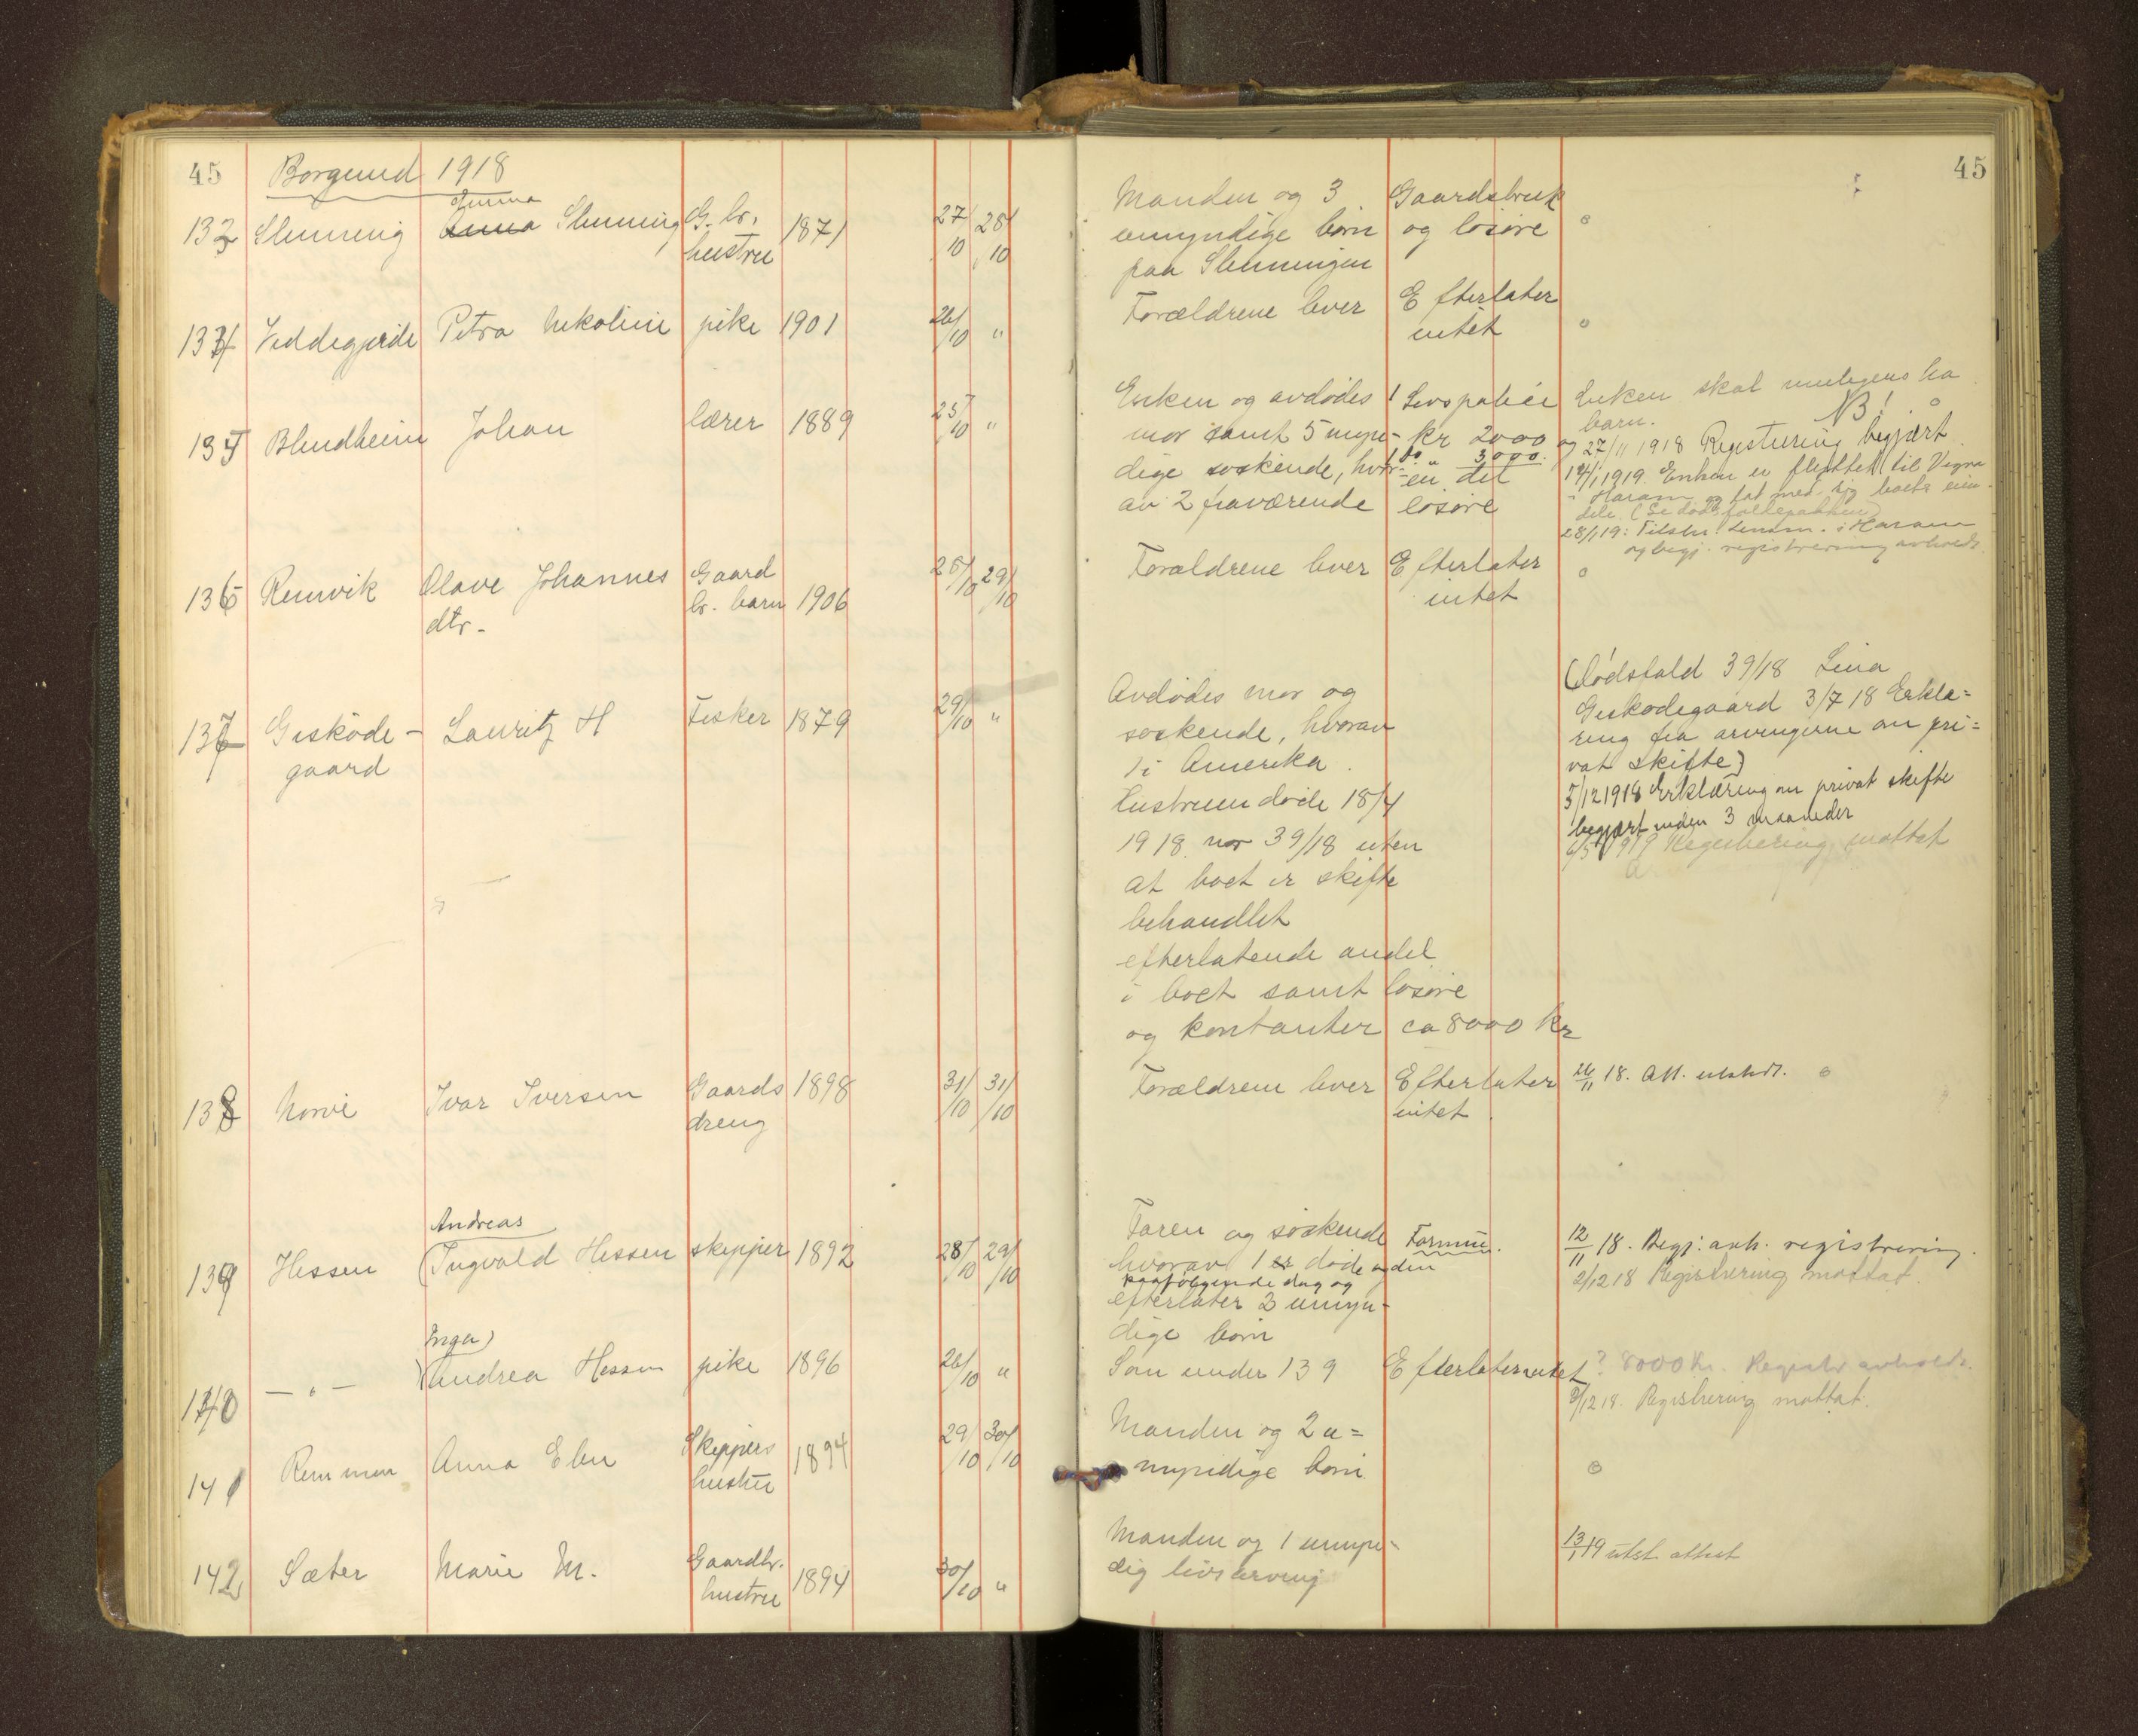 45 Borgund 1918
Emma
133 Slinning Anna Slinning G. br. hustru 1871 27/10 28/10
Manden og 3 Gaardsbruk
umyndige børn og løsøre
paa Slinningen
134 Veddegjerde Petra Nikoline pike 1901 26/10 "
Forældrene lever Efterlater
intet
135 Blindheim Johan lærer 1889 25/10 "
Enken og avdødes 1 Livspolice Enken skal muligens ha
barn. NB!
mor samt 5 myn- kr 2000 og 27/11 1918 Registrering begjært
dige søskende, hvor- 1 do. " 3000.
en del
av 2 fraværende løsøre
1919. Enken er flyttet til Vigra
i Haram og tat med sig boets eien-
dele. (Se dødsfaldspakken)
28/1 19: Tilskr. lensm. i Haram
og begj. registrering avholdt.
136 Remvik Olave Johannes Gaard
dtr. br. barn 1906 28/10 29/10
Forældrene lever Efterlater
intet
137 Giskøde- Lauritz H Fisker 1879 29/10 "
gaard
Avdødes mor og
søskende, hvorav
1 i Amerika.
Hustruen døde 18/4
1918 nor 39/18 uten
at boet er skifte
behandlet
efterlatende andel
i boet samt løsøre
og kontanter ca 8000 kr
(Dødsfald 39/18 Lina
Giskødegaard 3/7 18 Erklæ=
ring fra arvingerne om pri=
vat skifte)
5/12 1918 Erklæring om privat skifte
begjært inden 3 maaneder
6/3 1919 Registrering mottat
138 Norvi Ivar Iversen Gaards 1898 31/10 31/10
dreng
Forældrene lever Efterlater 26/11 18. Att. utstedt.
intet
Andreas
139 Hessen (Ingvald Hessen skipper 1892 28/10 29/10
Faren og søskende Formue.
hvorav 1 er døde den
paafølgende dag og
efterlater 2 umyn-
dige børn
12/11 18. Begj. avh. registrering.
2/12 18 Registrering mottat.
Inga)
140 — " — (Andrea Hessen pike 1896 26/10 "
Som under 139 Efterlater intet ? 8000 kr. Registr avholdt.
2/12 18. Registrering mottat.
141 Remmen Anna Elin Skippers
hustru 1894 29/10 30/10
Manden og 2 u=
myndige børn
142 Sæter Marie M. Gaardbr.
hustru 1894 30/10 "
Manden og 1 umyn-
dig livsarving
13/1 19 utst. attest
45